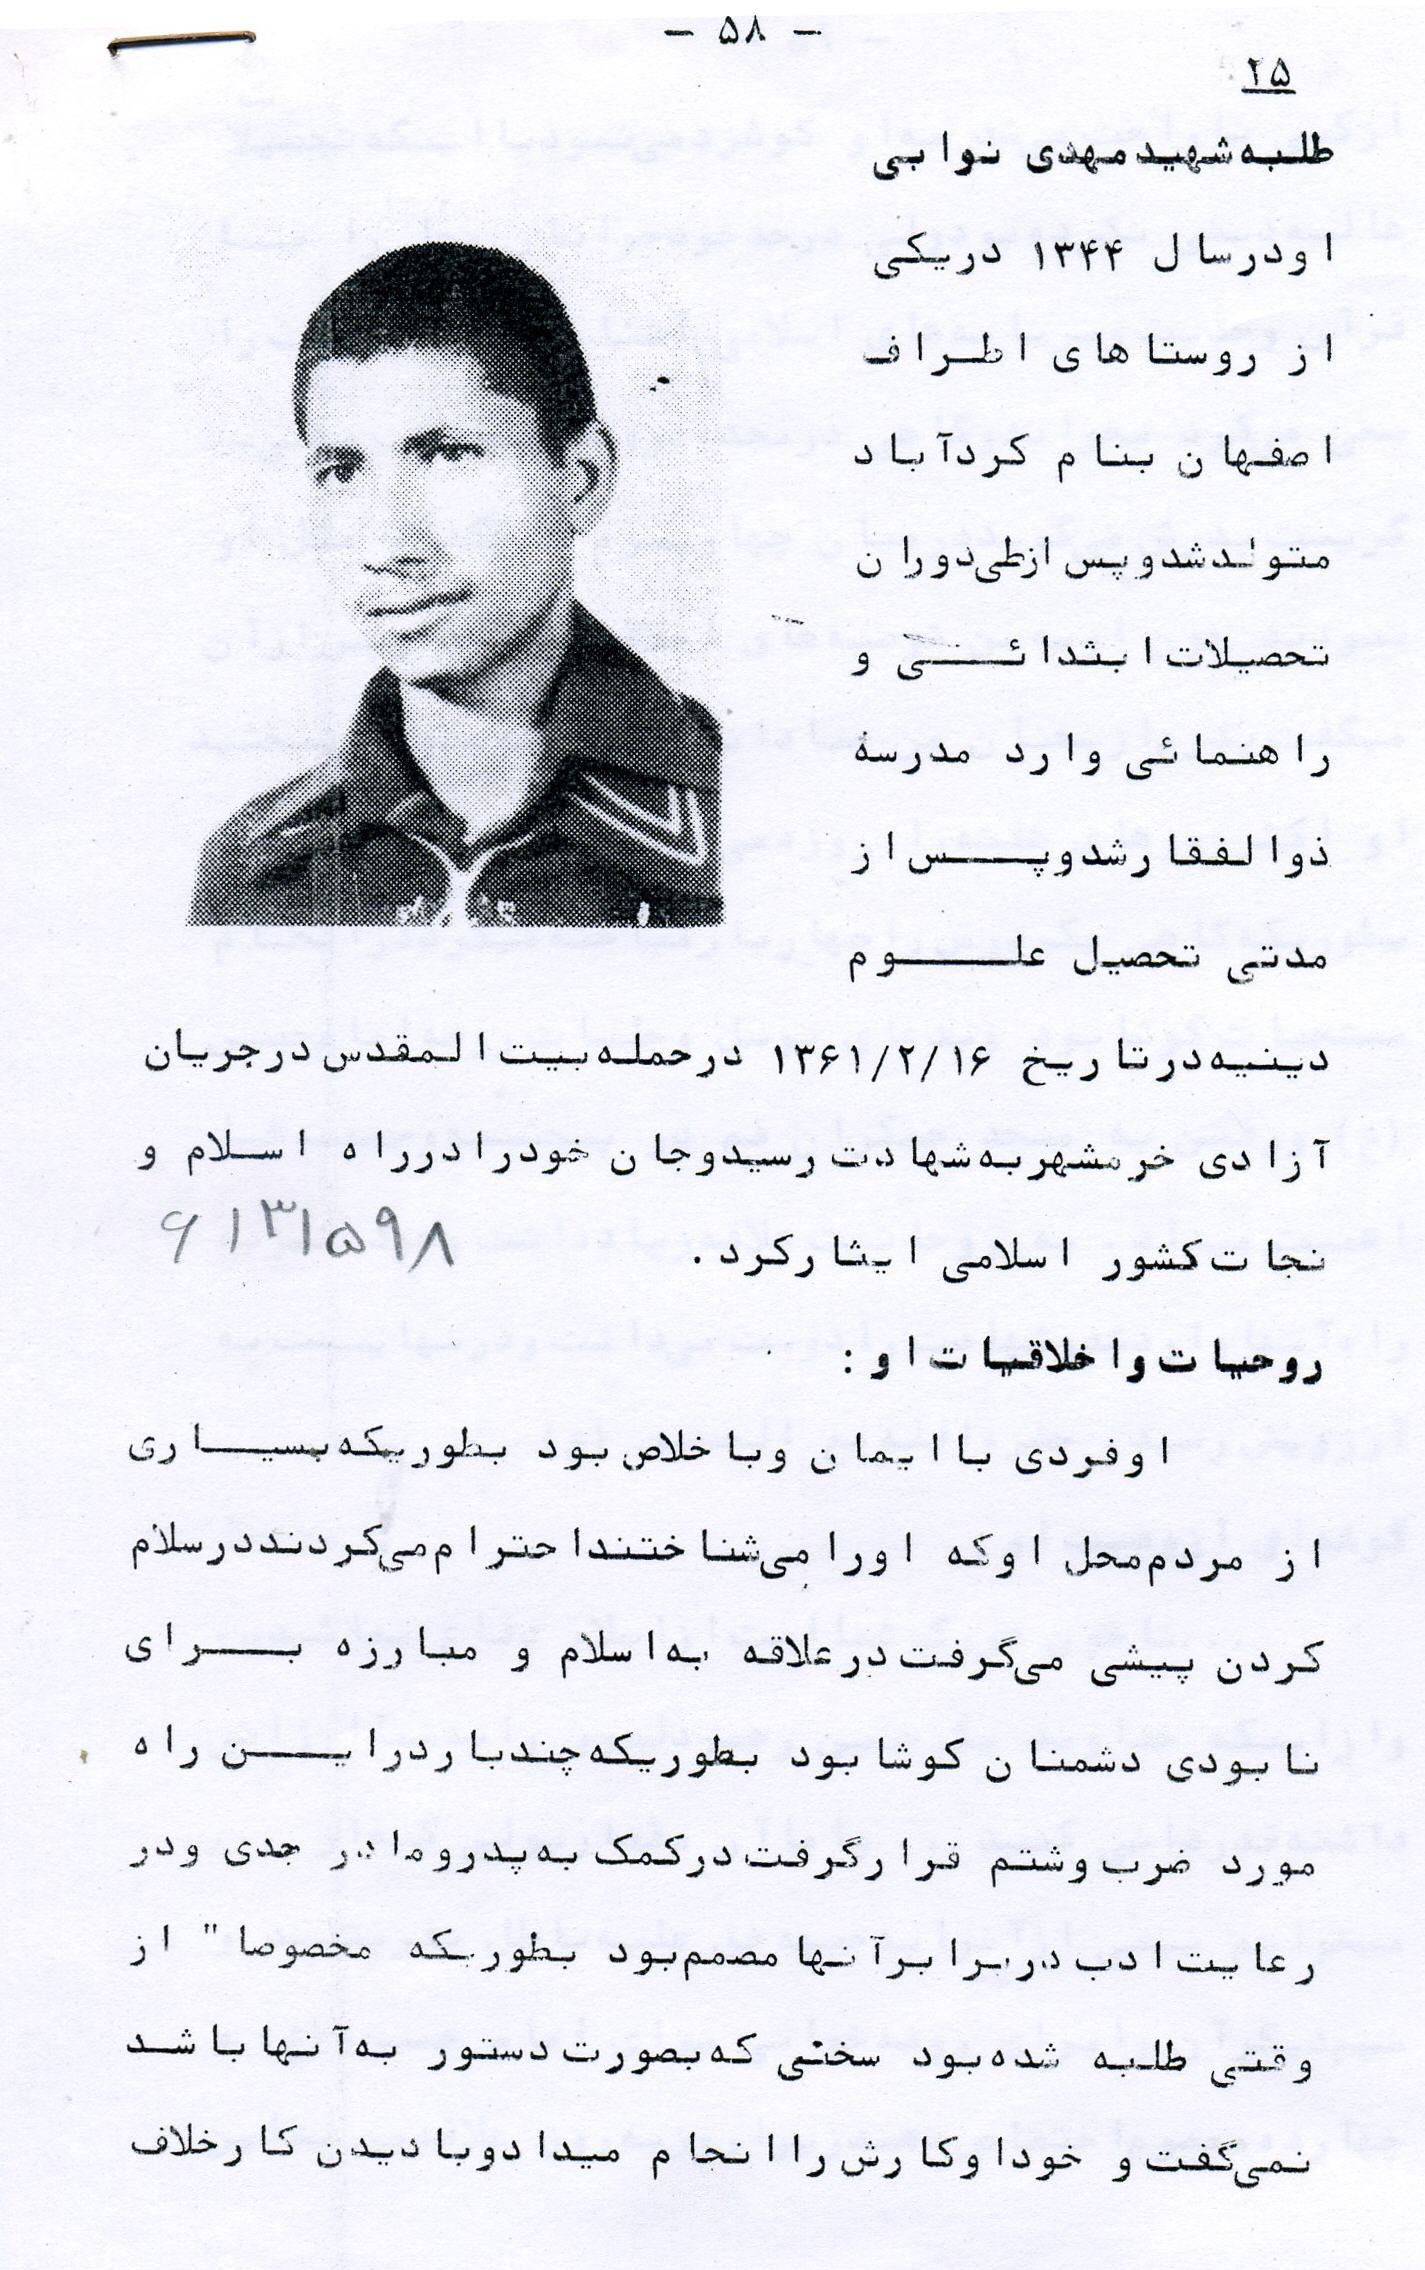 - ۵۸ -
۲۵
طلبه شهید مهدی نوابی
او در سال ۱۳۴۴ در یکی
از روستاهای اطراف
اصفهان بنام کردآباد
متولد شد و پس از طی دوران
تحصیلات ابتدائی و
راهنمائی وارد مدرسهٔ
ذوالفقار شد و پس از
مدتی تحصیل علوم
دینیه در تاریخ ۱۳۶۱/۲/۱۶ در حمله بیت المقدس در جریان
آزادی خرمشهر به شهادت رسید و جان خود را در راه اسلام و
نجات کشور اسلامی ایثار کرد .
۶۱۳۱۵۹۸
روحیات و اخلاقیات او :
او فردی با ایمان و با خلاص بود بطوریکه بسیاری
از مردم محل او که او را می‌شناختند احترام می‌کردند در سلام
کردن پیشی می‌گرفت در علاقه به اسلام و مبارزه برای
نابودی دشمنان کوشا بود بطوریکه چند بار در این راه
مورد ضرب و شتم قرار گرفت در کمک به پدر و مادر جدی و در
رعایت ادب در برابر آنها مصمم بود بطوریکه مخصوصا" از
وقتی طلبه شده بود سختی که بصورت دستور به آنها باشد
نمی‌گفت و خود او کارش را انجام میداد و با دیدن کار خلاف